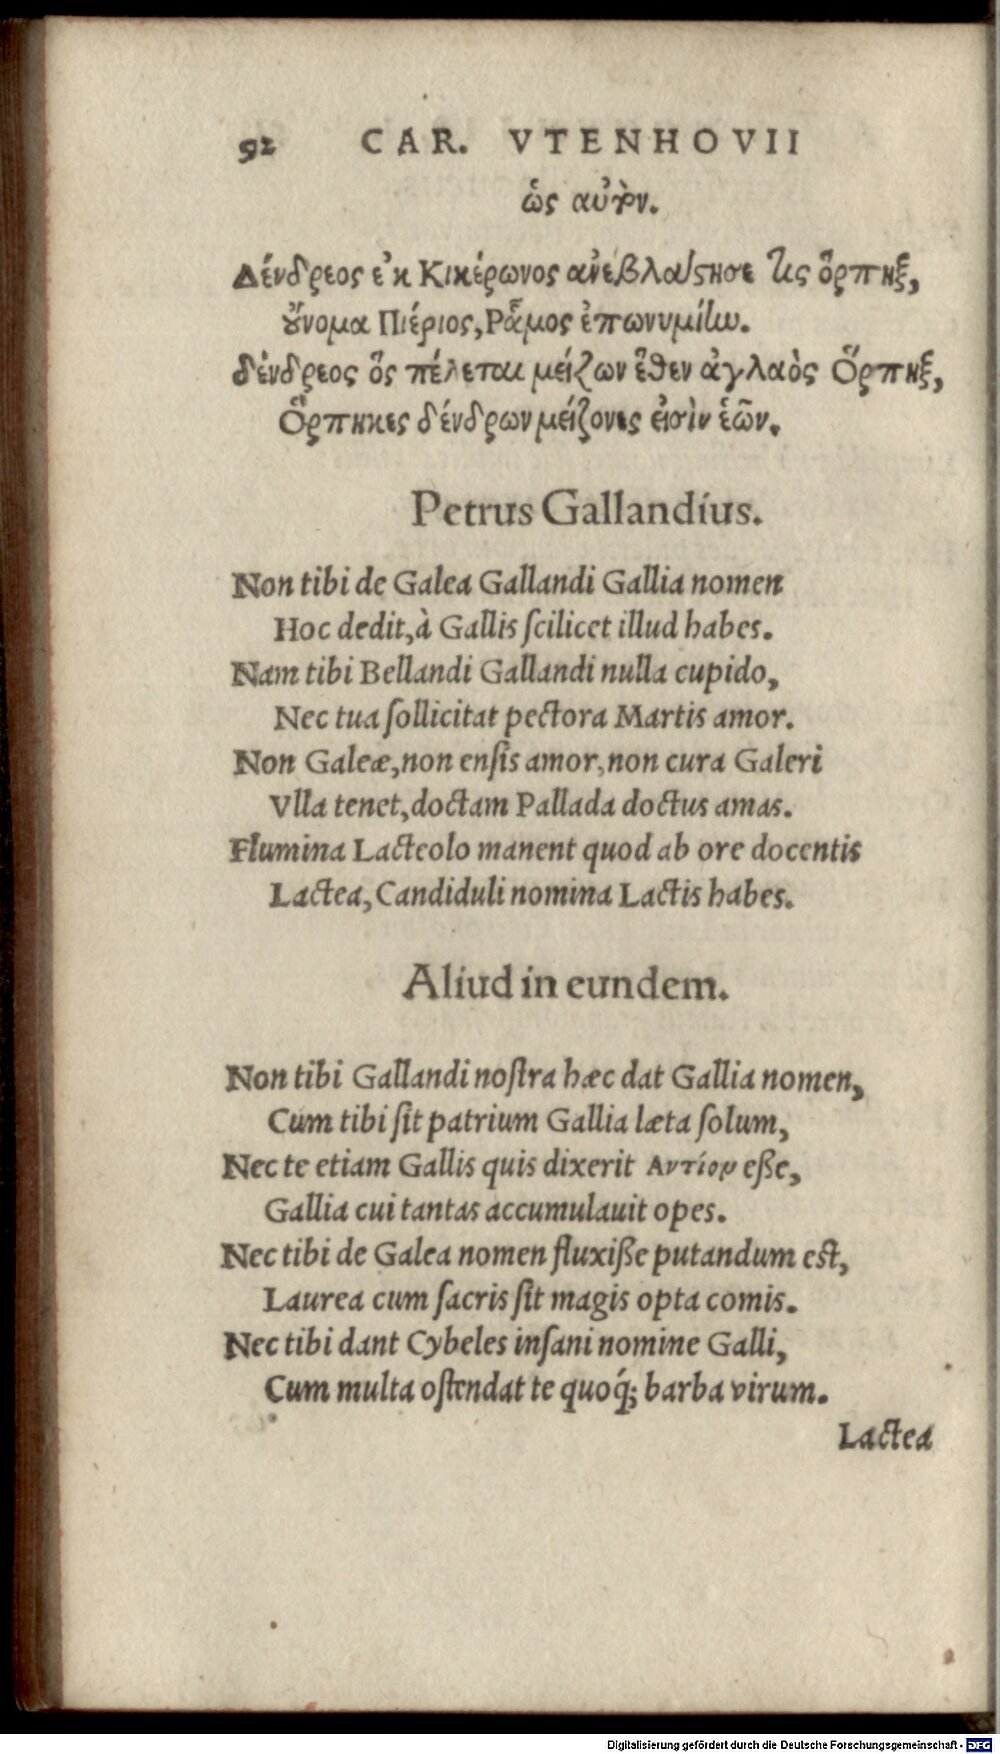 92 CAR. VTENHOVII
ὡς αὐτόν.
Δένδρεος ἐκ Κικέρωνος ἀνεβλάστησε τὶς ὄρπηξ,
οὔνομα Πιέριος, Ρᾶμος ἐπωνυμίην.
δένδρεος ὃς πέλεται μείζων ἕθεν ἀγλαὸς Ὅρπηξ,
Ὅρπηκες δένδρων μείζονες εἰσὶν ἑῶν.
Petrus Gallandius.
Non tibi de Galea Gallandi Gallia nomen
Hoc dedit, à Gallis ſcilicet illud habes.
Nam tibi Bellandi Gallandi nulla cupido,
Nec tua ſollicitat pectora Martis amor.
Non Galeæ, non enſis amor, non cura Galeri
Vlla tenet, doctam Pallada doctus amas.
Flumina Lacteolo manent quod ab ore docentis
Lactea, Candiduli nomina Lactis habes.
Aliud in eundem.
Non tibi Gallandi noſtra hæc dat Gallia nomen,
Cum tibi ſit patrium Gallia læta ſolum,
Nec te etiam Gallis quis dixerit Αντίον eſſe,
Gallia cui tantas accumulauit opes.
Nec tibi de Galea nomen fluxiſſe putandum eſt,
Laurea cum ſacris ſit magis opta comis.
Nec tibi dant Cybeles inſani nomine Galli,
Cum multa oſtendat te quoq́; barba virum.
Lactea
Digitalisierung gefördert durch die Deutsche Forschungsgemeinschaft - DFG